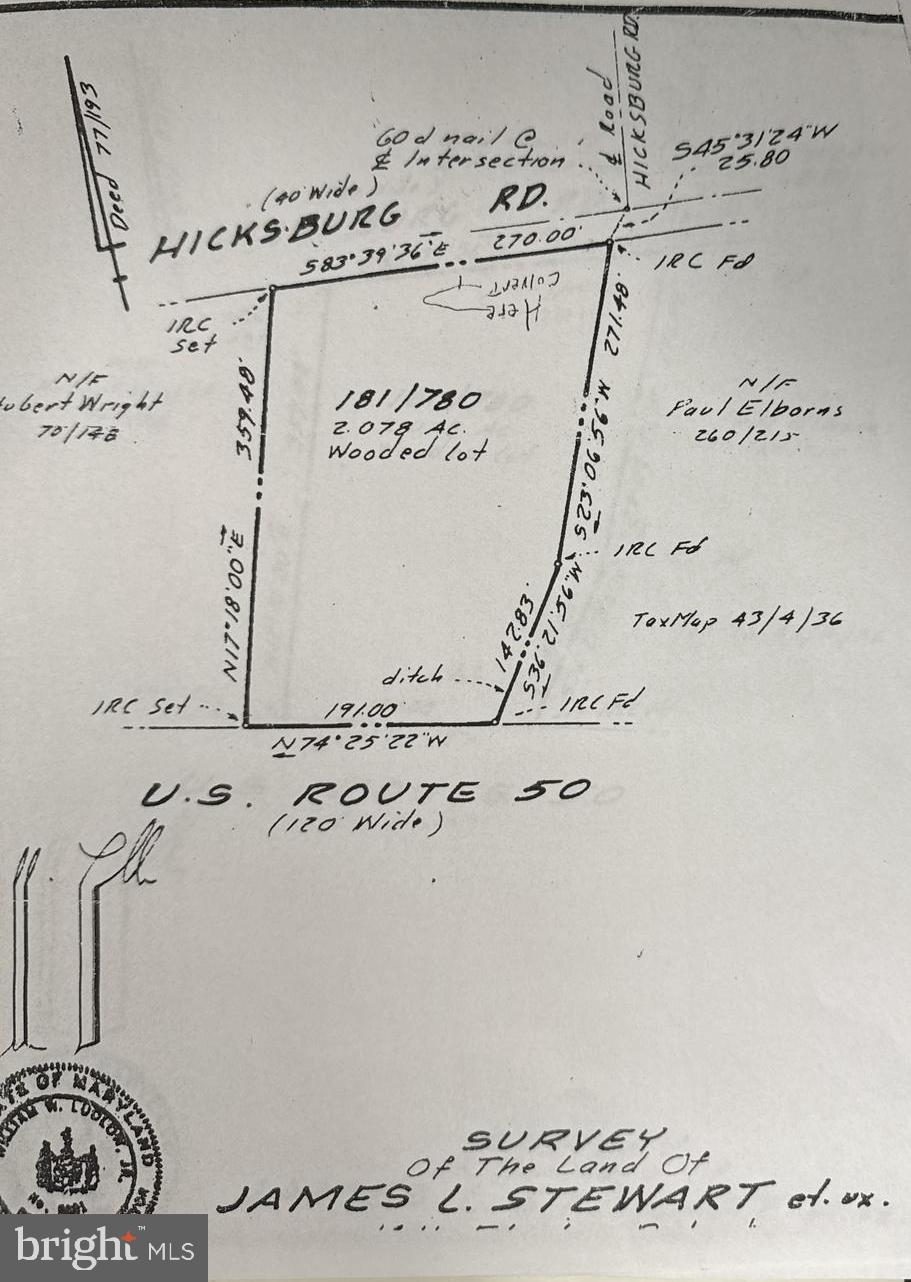 Deed 77/193
60 d nail @
℄ Intersection
℄ Road
HICKSBURG RD.
S45°31'24"W
25.80
(40' Wide)
HICKSBURG RD.
S83°39'36"E 270.00'
IRC Fd
IRC
Set
Here
Culvert
271.48'
S23°06'56"W
359.48'
N17°18'00"E
N/F
Hubert Wright
70/148
181/780
2.078 Ac.
Wooded lot
N/F
Paul Elborns
260/215
IRC Fd
142.83'
S36°12'56"W
Tax Map 43/4/36
ditch
IRC Set
191.00'
IRC Fd
N74°25'22"W
U.S. ROUTE 50
(120' Wide)
STATE OF MARYLAND
WILLIAM W. LUDLOW, JR.
SURVEY
Of The Land Of
JAMES L. STEWART et. ux.
bright™ MLS